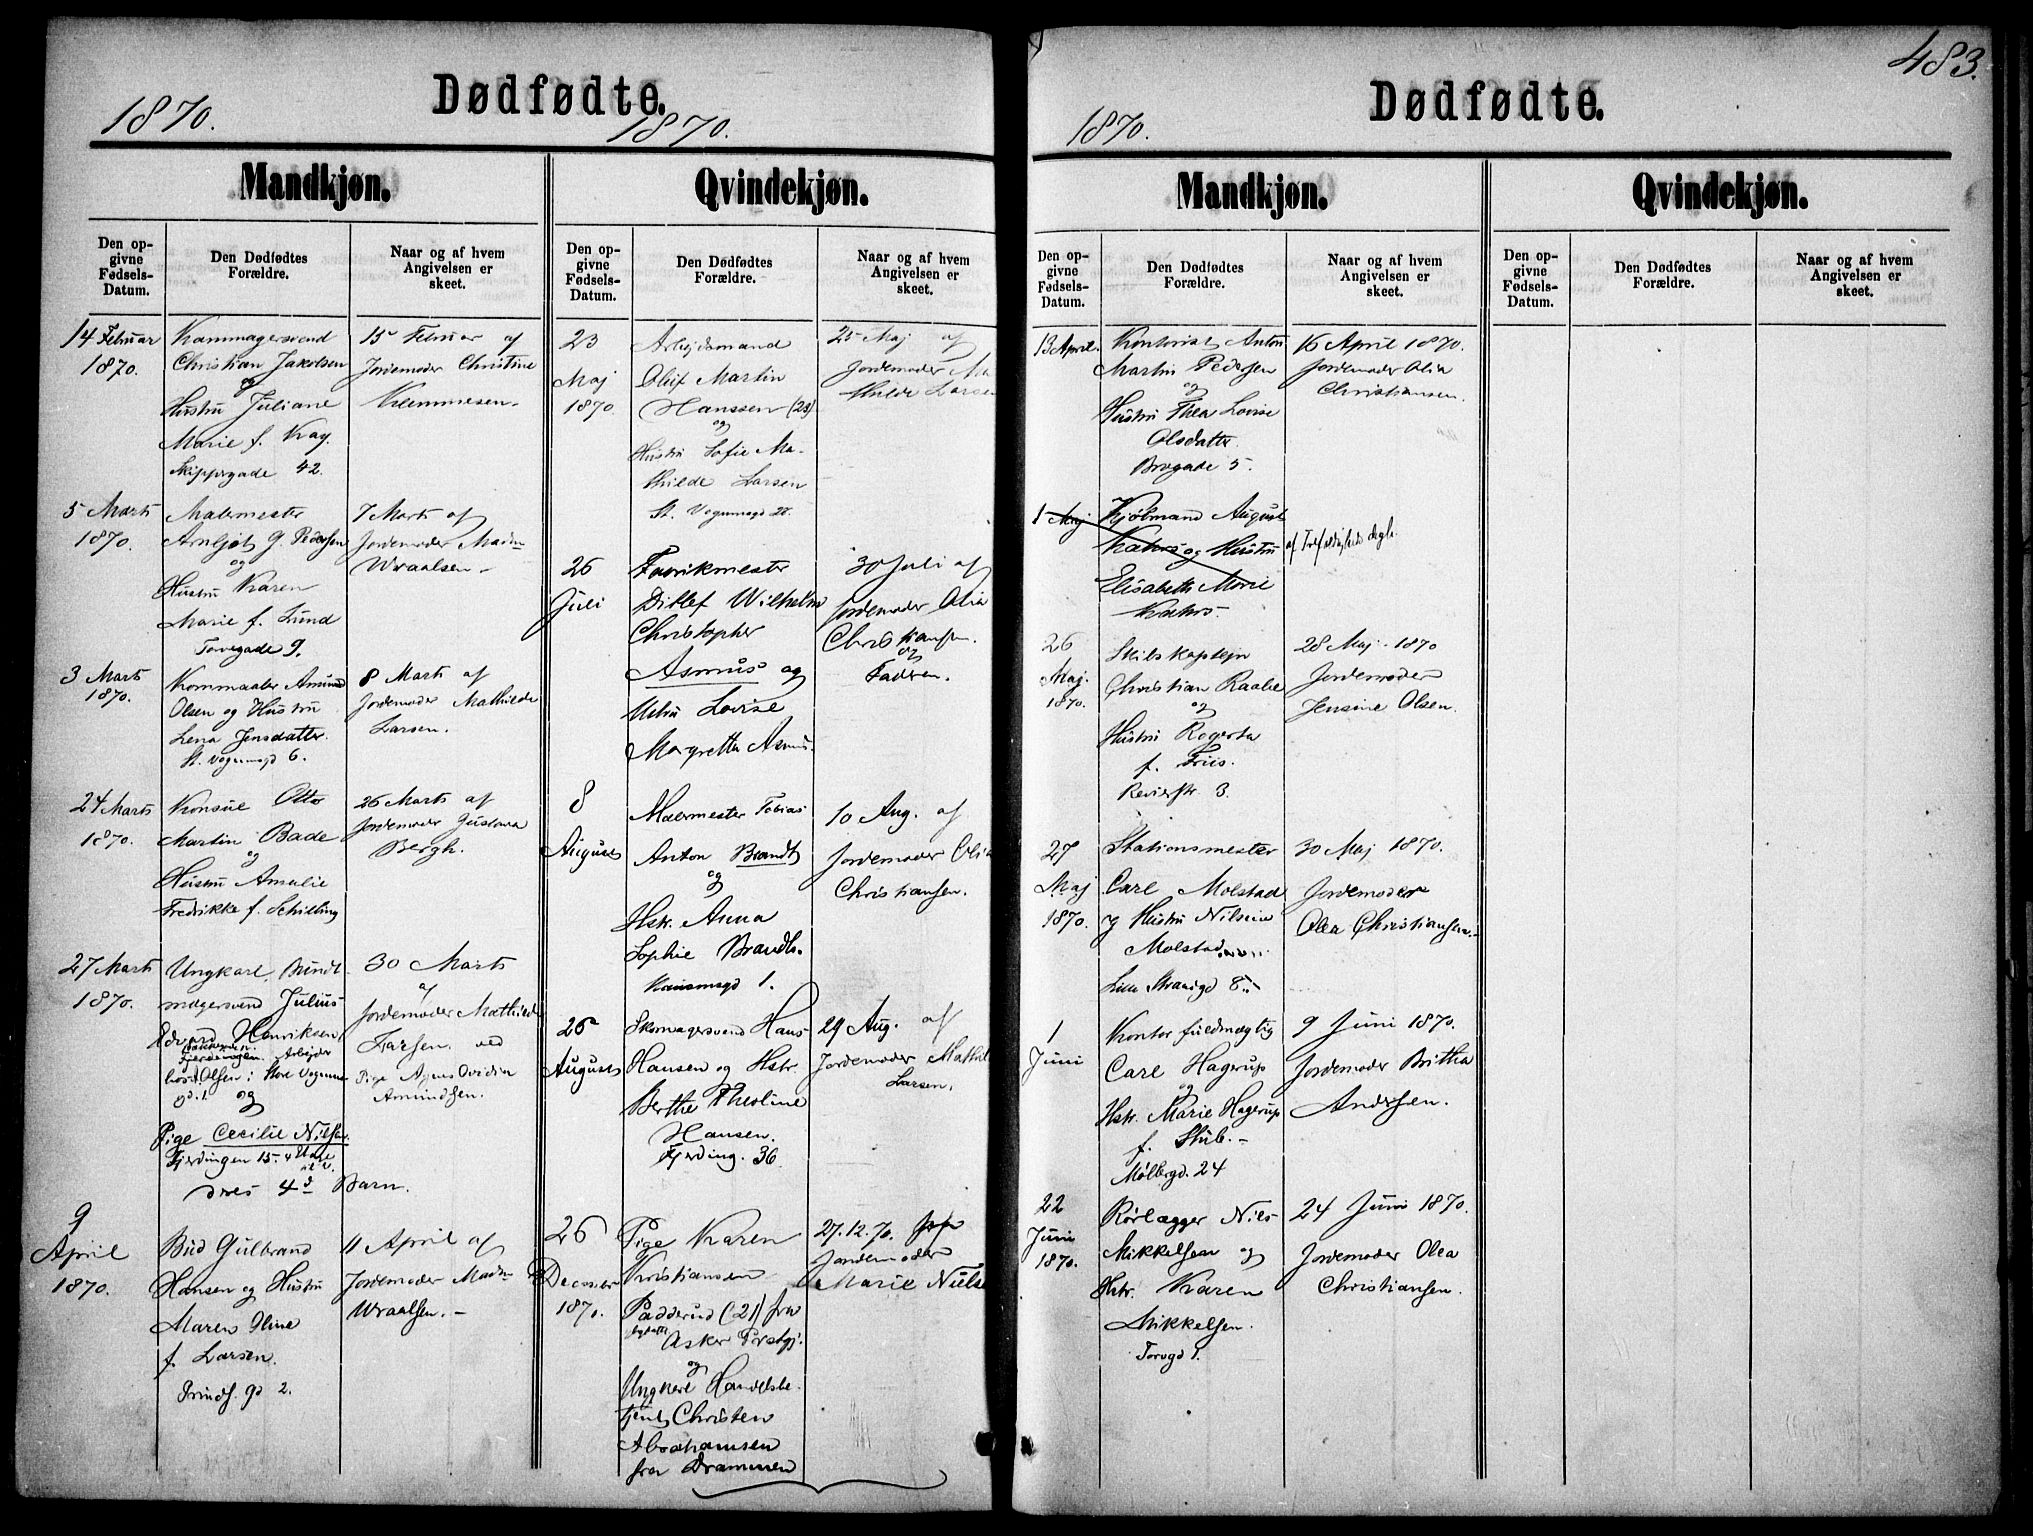 483.
Dødfødte.
1870.
1870.
Mandkjøn.
Den op-
givne
Fødsels-
Datum.
Den Dødfødtes
Forældre.
Naar og af hvem
Angivelsen er
skeet.
14 Februar
1870.
Christian Jakobsen
og
Hustru Juliane
Marie f. Krag.
Skippergade 42.
15 Februar af
Jordemoder Christine
Klemmesen.
5 Marts
1870.
Malermester
Arnljot G. Pedersen
og
Hustru Karen
Marie f. Lund
Torvegade 9.
7 Marts af
Jordemoder
Wraalsen.
3 Marts
1870.
Kornmaaler Amund
Olsen og Hustru
Lena Jensdatter.
St. Vognmgd 6.
8 Marts af
Jordemoder Mathilde
Larsen.
24 Marts
1870.
Konsul Otto
Martin Bade
og
Hustru Amalie
Fredrikke f. Schilling
26 Marts af
Jordemoder Gustava
Bergh.
27 Marts
1870.
Ungkarl, Bundt-
magersvend Julius
Edvard Henriksen,
Fjerdingen. Arbejder
hos Olsen i Store Vognm-
gd. 1. og
Pige Cecilie Nilsen.
Fjerdingen 15. 4 Etage
deres 4d Barn.
30 Marts
af
Jordemoder Mathilde
Larsen ved
Pige Agnes Ovidia
Amundsen.
9
April
1870.
Bud Gulbrand
Hansen og Hustru
Maren Oline
f. Larsen.
Prinds. gd 2.
11 April af
Jordemoder
Wraalsen.
Qvindekjøn.
Den op-
givne
Fødsels-
Datum.
Den Dødfødtes
Forældre.
Naar og af hvem
Angivelsen er
skeet.
23
Maj
1870.
Arbejdsmand
Oluf Martin
Hanssen (28)
og
Hustru Sofie Ma-
thilde Larsen
St. Vognmgd
25 Maj af
Jordemoder Ma
thilde Larsen
26
Juli
Fabrikmester
Ditlef Wilhelm
Christopher
Asmus og
Hstru Lovise
Margretha Asmus.
30 Juli af
Jordemoder Olia
Christiansen
og
Faderen.
8
August
Malermester Tobias
Anton Brandt
og
Hstr. Anna
Sophie Brandt.
1.
10 Aug. af
Jordemoder Olia
Christiansen.
26
August
Skomagersvend Hans
Hansen og Hstr.
Berthe Theoline
Hansen.
Fjerding. 36
29 Aug. af
Jordemoder Mathil
Larsen.
26
December
1870.
Pige Karen
Kristiansen
Padderud (21) fra
Asker Præstgj.
og
Ungkarl Handelsbe-
tjent Christen
Abrahamsen
fra Drammen
27.12.70.
Jordemoder
Marie Niels
Dødfødte.
1870.
Mandkjøn.
Den op-
givne
Fødsels-
Datum.
Den Dødfødtes
Forældre.
Naar og af hvem
Angivelsen er
skeet.
13 April.
Kontorist Anton
Martin Pedersen
og
Hustru Thea Lovise
Olsdatter.
Brogade 5.
16 April 1870.
Jordemoder Olia
Christiansen.
1 Maj
Kjøbmand August
Kahrs og Hustru
Elisabeth Marie
Kahrs
af Trefoldigheds
26
Maj.
1870.
Skibskaptejn
Christian Raabe
og
Hustru Rogerta
f. Friis.
Revierstr. 3.
28 Maj. 1870
Jordemoder
Jensine Olsen.
27
Maj
1870.
Stationsmester
Carl Molstad
og Hustru Nilsine
Molstad
Lille Strandgd 8
30 Maj 1870.
Jordemoder
Olea Christiansen.
1
Juni
Kontorfuldmægtig
Carl Hagerup
og
Hstr. Marie Hagerup
f. Stub.
Møllergd. 24
9 Juni 1870.
Jordemoder Britha
Andersen.
22
Juni
1870.
Rørlægger Niels
Mikkelsen og
Hstr. Karen
Mikkelsen.
Torvgd 1.
24 Juni 1870.
Jordemoder Olea
Christiansen.
Qvindekjøn.
Den op-
givne
Fødsels-
Datum.
Den Dødfødtes
Forældre.
Naar og af hvem
Angivelsen er
skeet.